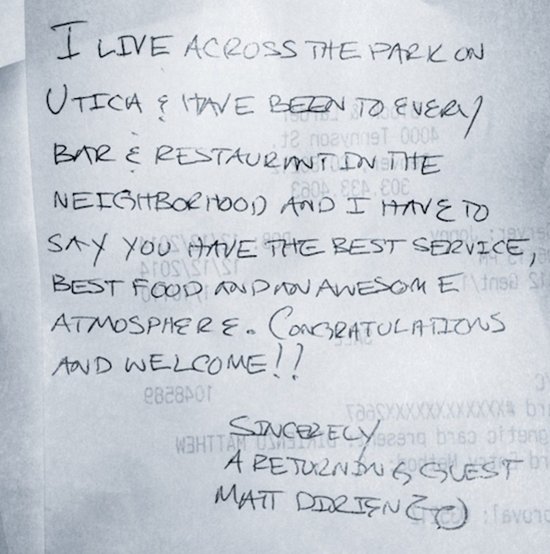 I LIVE ACROSS THE PARK ON
UTICA & HAVE BEEN TO EVERY
BAR & RESTAURANT IN THE
NEIGHBORHOOD AND I HAVE TO
SAY YOU HAVE THE BEST SERVICE,
BEST FOOD AND AN AWESOME
ATMOSPHERE. CONGRATULATIONS
AND WELCOME!!
SINCERELY
A RETURNING GUEST
MATT DIRIENZO